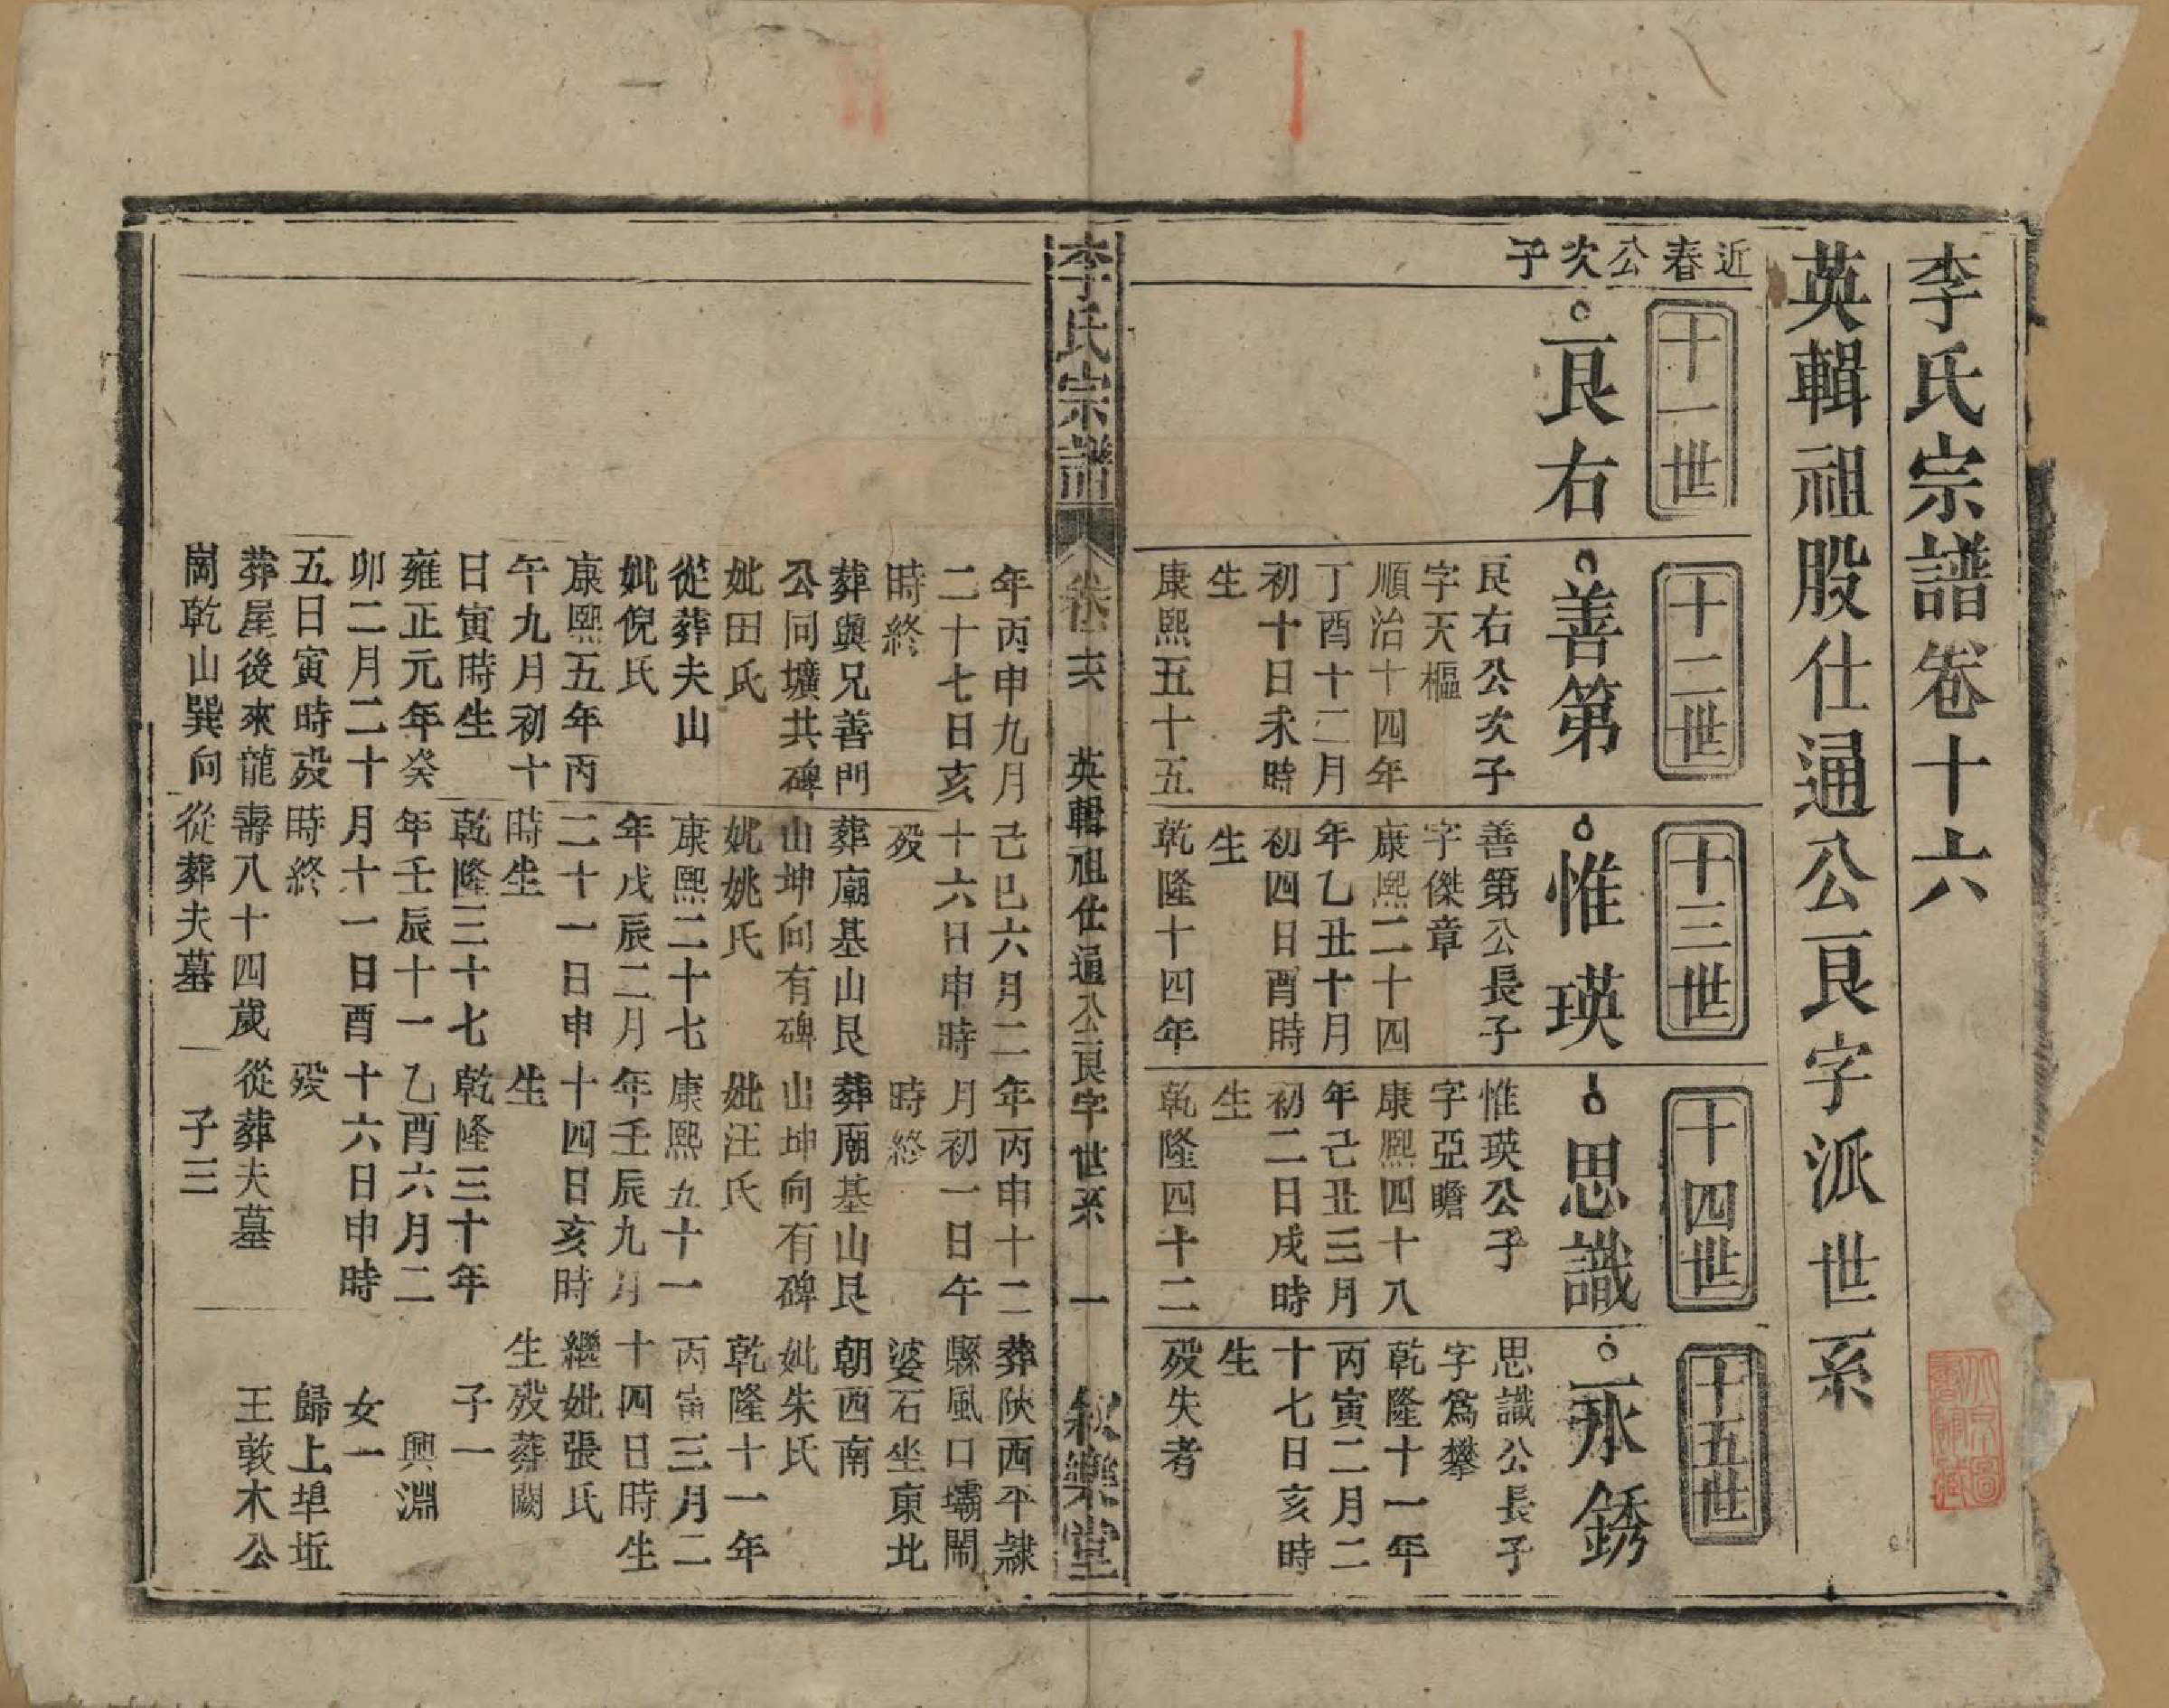 李氏宗譜卷十六
英輯祖股仕通公艮字派世系
近春公次子
十一世
艮右
十二世
善第
艮右公次子
字天樞
順治十四年
丁酉十二月
初十日未時
生
康熙五十五
年丙申九月
二十七日亥
時終
葬與兄善門
公同壙共碑
妣田氏
從葬夫山
妣倪氏
康熙五年丙
午九月初十
日寅時生
雍正元年癸
卯二月二十
五日寅時歿
葬屋後來龍
崗乾山巽向
十三世
惟瑛
善第公長子
字傑章
康熙二十四
年乙丑十月
初四日酉時
生
乾隆十四年
己巳六月二
十六日申時
歿
葬廟基山艮
山坤向有碑
妣姚氏
康熙二十七
年戊辰二月
二十一日申
時生
乾隆三十七
年壬辰十一
月十一日酉
時終
壽八十四歲
從葬夫墓
十四世
思識
惟瑛公子
字亞瞻
康熙四十八
年己丑三月
初二日戌時
生
乾隆四十二
年丙申十二
月初一日午
時終
葬廟基山艮
山坤向有碑
妣汪氏
康熙五十一
年壬辰九月
十四日亥時
生
乾隆三十年
乙酉六月二
十六日申時
歿
從葬夫墓
子三
十五世
永銹
思識公長子
字為攀
乾隆十一年
丙寅二月二
十七日亥時
生
歿失考
葬陝西平隸
縣風口壩鬧
婆石坐東北
朝西南
妣朱氏
乾隆十一年
丙寅三月二
十四日時生
繼妣張氏
生歿葬闕
子一
興淵
女一
歸上埠坵
王敦木公
李氏宗譜
卷十六
英輯祖仕通公艮字世系
一
敘樂堂